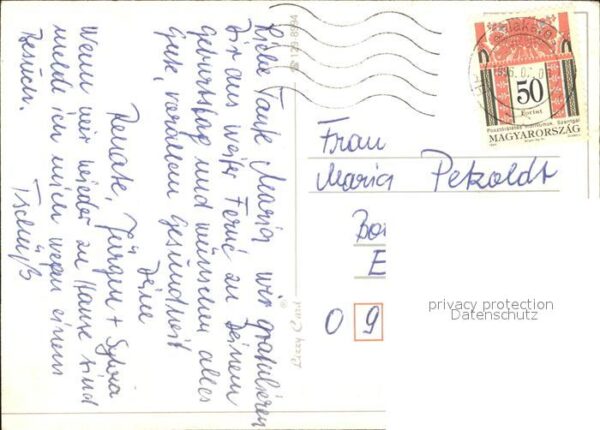 Liebe Tante Maria wir gratulieren
Dir aus weiter Ferne zu Deinem
Geburtstag und wünschen alles
Gute, vorallem Gesundheit
Deine
Renate, Jürgen + Sylvia
Wenn wir wieder zu Hause sind
melde ich mich wegen einem
Besuch.
Tschüß
50
Forint
MAGYARORSZÁG
Frau
Maria Petzoldt
Bo
E
0 9
privacy protection
Datenschutz